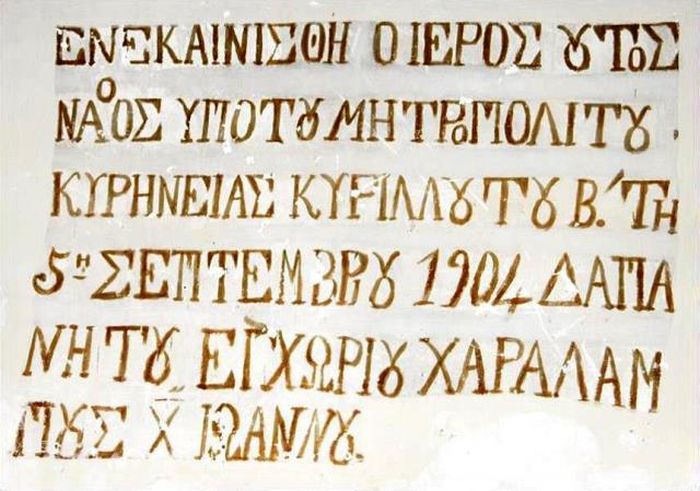 ΕΝΕΚΑΙΝΙΣΘΗ Ο ΙΕΡΟΣ ȣΤΟΣ
ΝΑΟΣ ΥΠΟ Τȣ ΜΗΤΡΟΠΟΛΙΤȣ
ΚΥΡΗΝΕΙΑΣ ΚΥΡΙΛΛȣ ΤȣΒ.΄ ΤΗ
5ῃ ΣΕΠΤΕΜΒΡΙȣ 1904 ΔΑΠΑ
ΝΗ ΤȣΕΓΧΩΡΙȣ ΧΑΡΑΛΑΜ
ΠȣΣ Χ͞ ΙΩΑΝΝȣ.